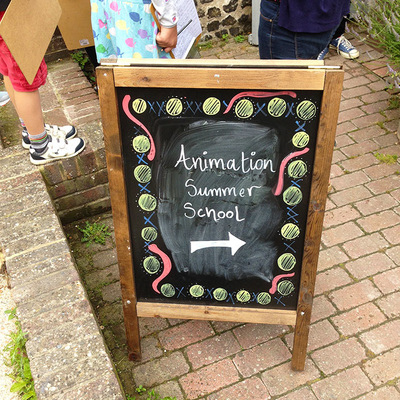 Animation
Summer
School